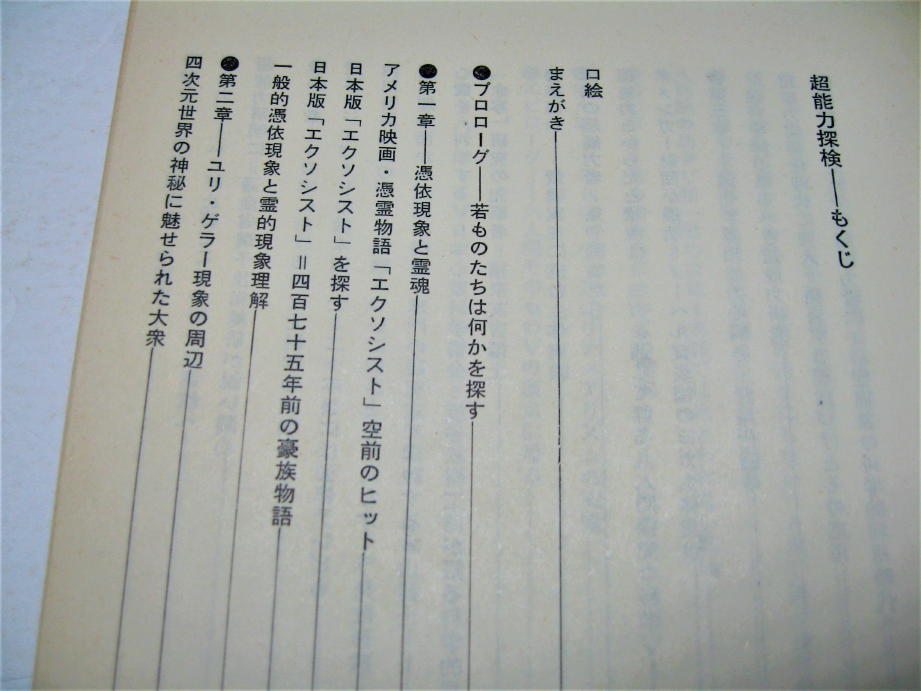 超能力探検――もくじ
口絵
まえがき
●プロローグ――若ものたちは何かを探す
●第一章――憑依現象と霊魂
アメリカ映画・憑霊物語「エクソシスト」空前のヒット
日本版「エクソシスト」を探す
日本版「エクソシスト」＝四百七十五年前の豪族物語
一般的憑依現象と霊的現象理解
●第二章――ユリ・ゲラー現象の周辺
四次元世界の神秘に魅せられた大衆